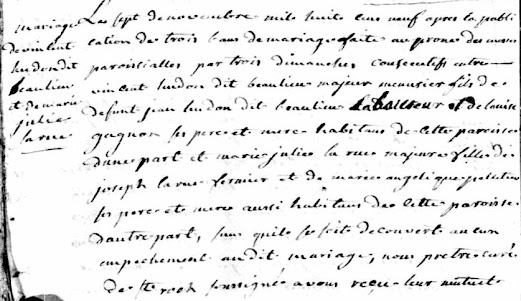 mariage
de vinlent
hudon dit
beaulieu
et de marie
julie
la rue
Les sept de novembre mile huits cens neuf apres la publi
cation de trois bans de mariage faite au prone des messes
paroissialles par trois dimanches consecutifs entre
vinlent hudon dit beaulieu majeur meunier fils de
defunt jean hudon dit beaulieu et de louise
gagnon ses pere et mere habitans de cette paroisse
dune part et marie julie la rue majeure fille de
joseph la rue fermier et de marie angelique pelletier
ses pere et mere aussi habitans de cette paroisse
dautre part, sans quils se soit decouvert aucun
empechement audit mariage, nous pretre curé
de ste roch soussigné avons recu leur mutuel